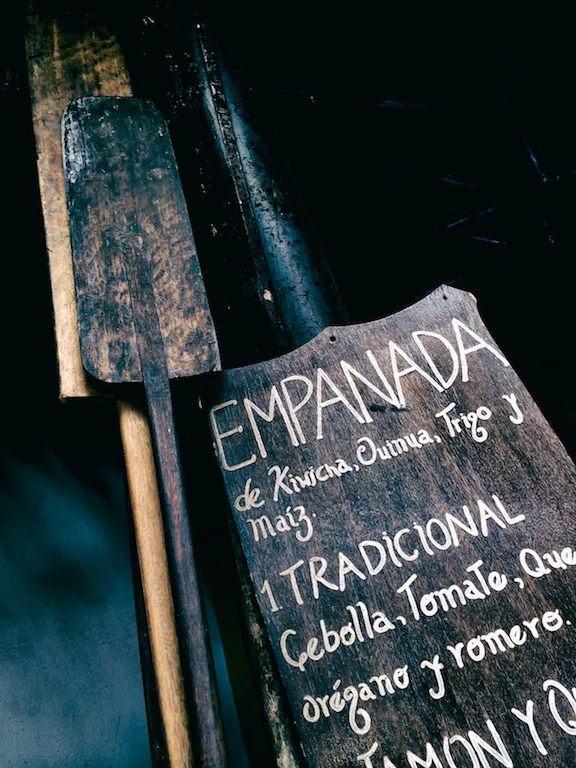 EMPANADA
de Kiwicha, Quinua, Trigo y
Maíz.
1. TRADICIONAL
Cebolla, Tomate, Que
orégano y romero.
JAMON Y Q